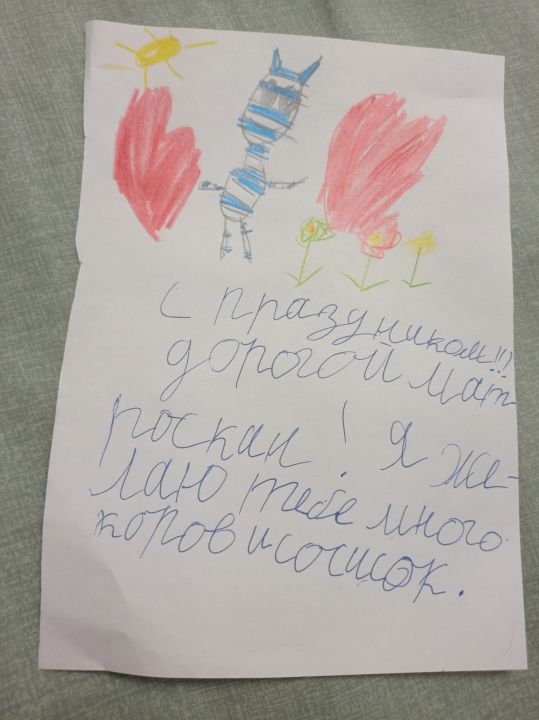 С праздником!!!
дорогой мат-
роскан! Я же-
лаю тебе много
коров и сосисок.